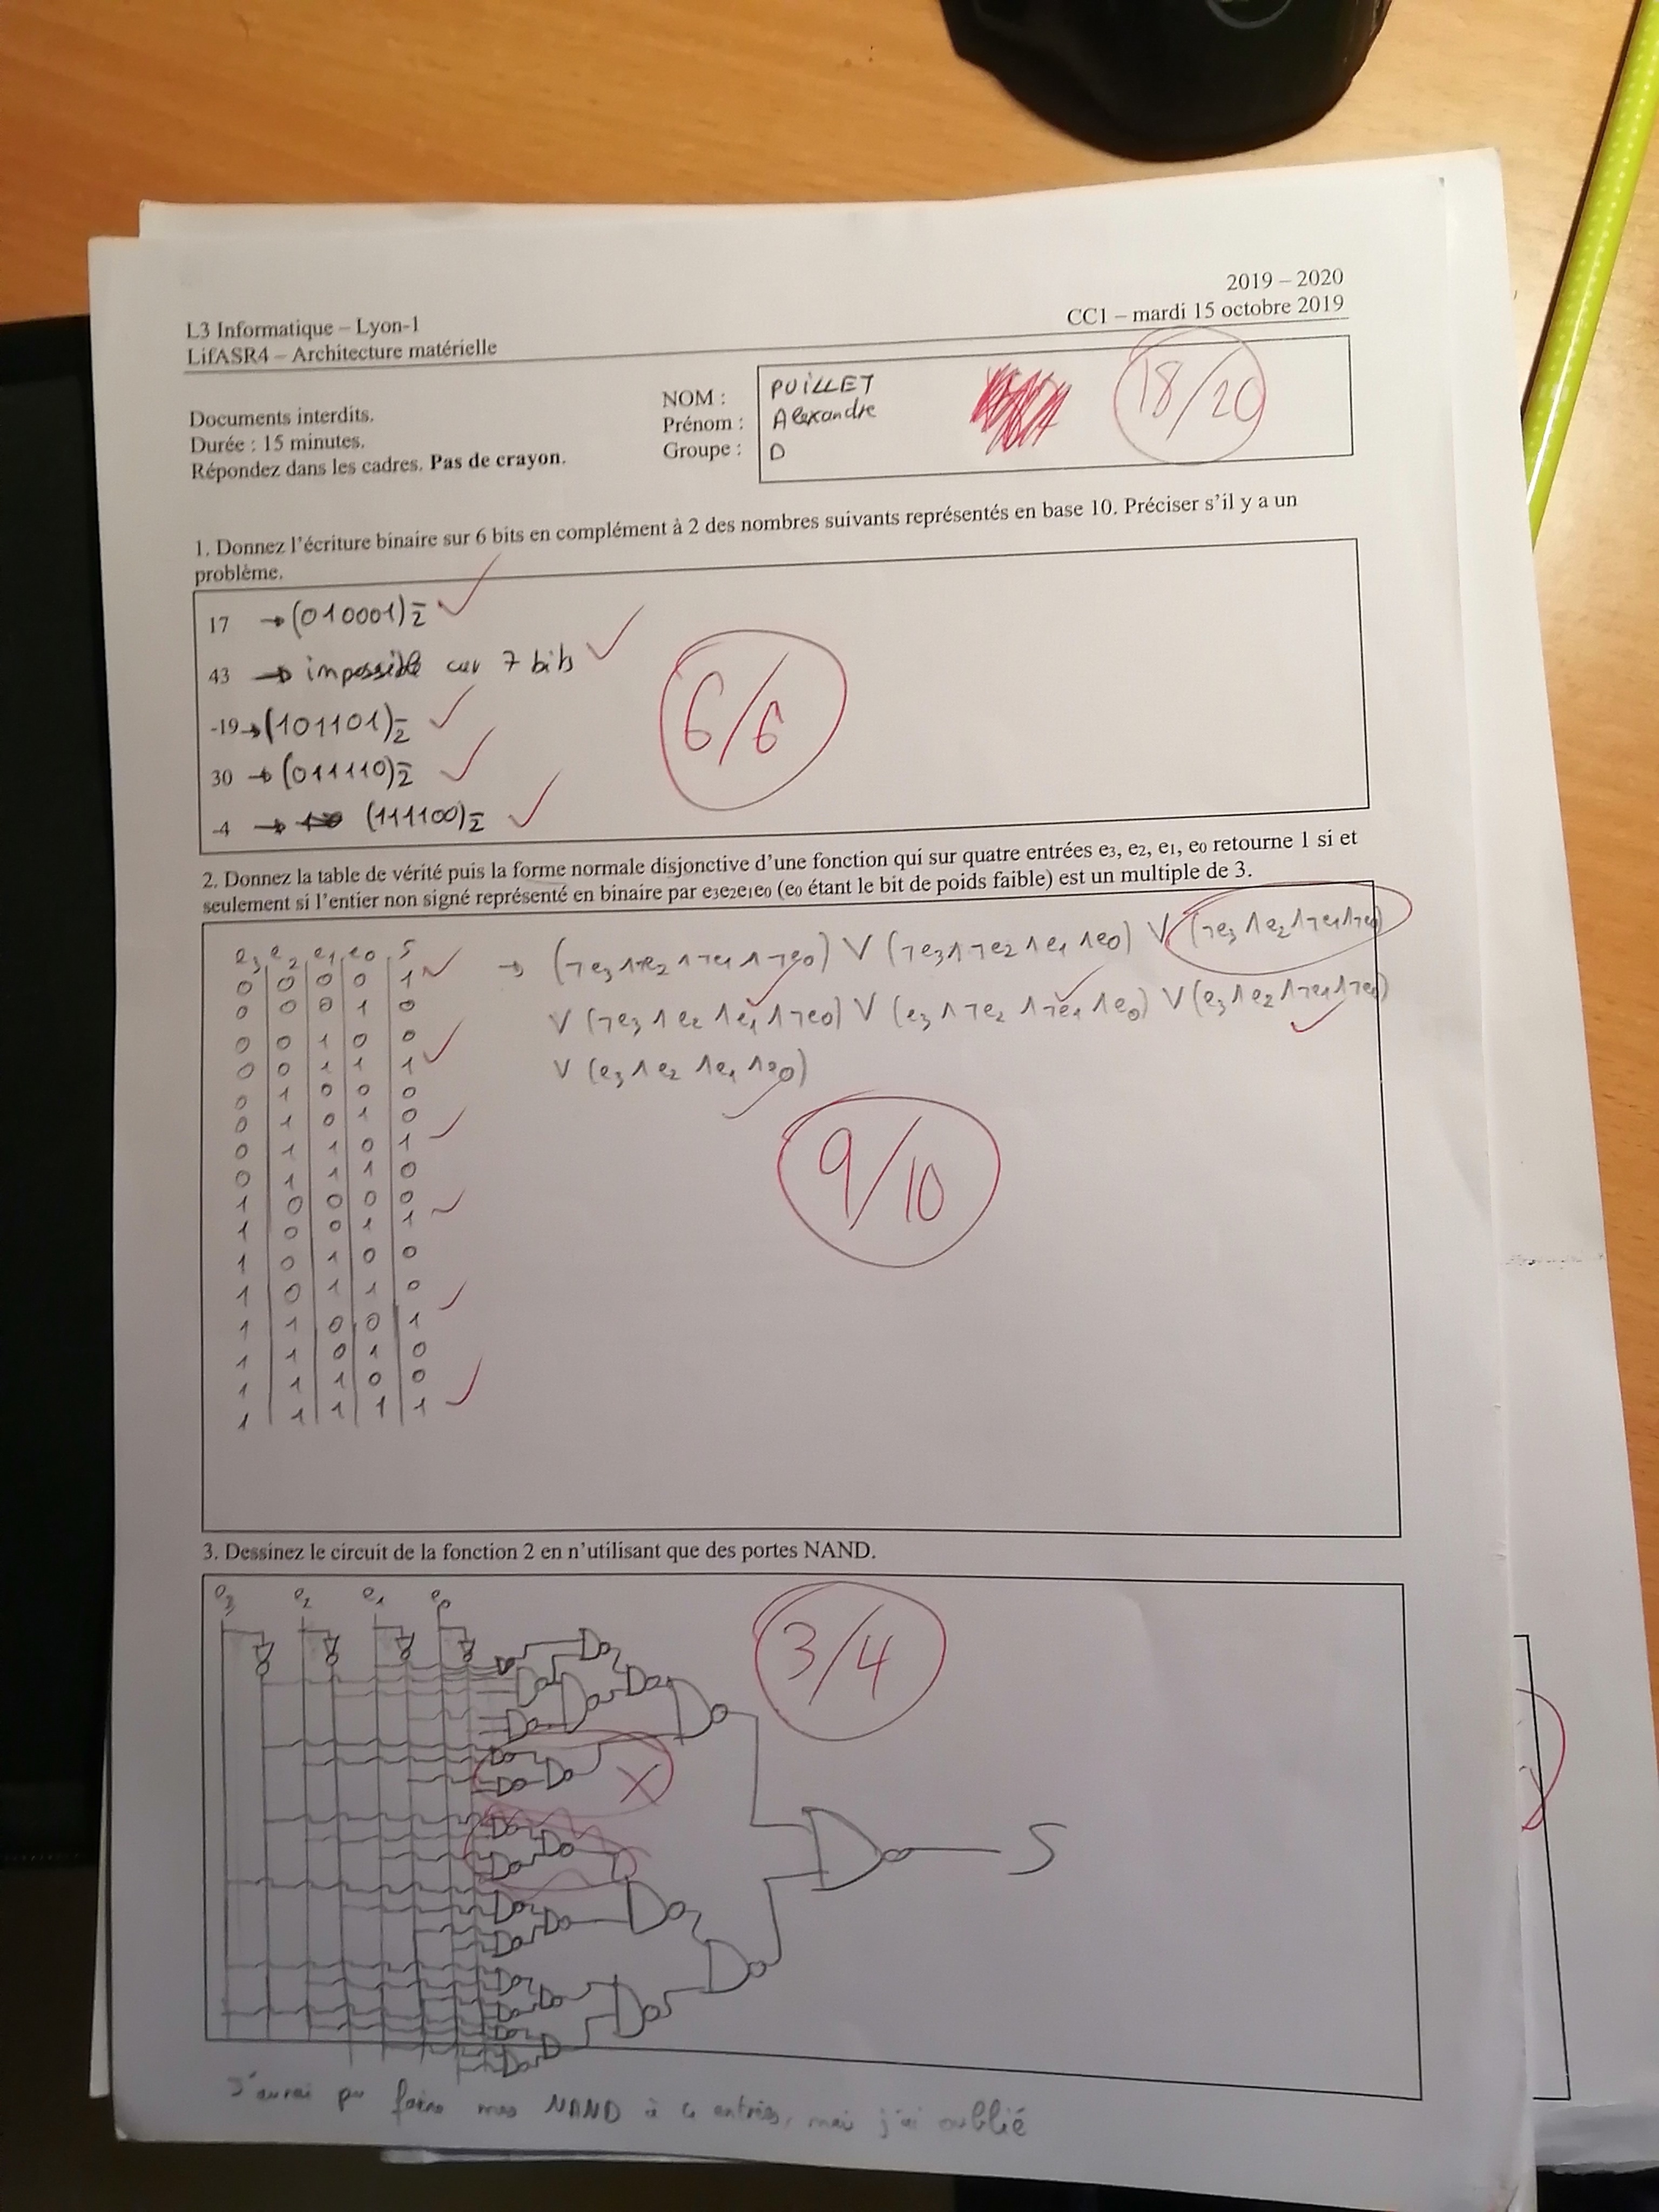 2019 – 2020
L3 Informatique – Lyon-1
CC1 – mardi 15 octobre 2019
LifASR4 – Architecture matérielle
Documents interdits.
Durée : 15 minutes.
Répondez dans les cadres. Pas de crayon.
NOM : PUILLET
Prénom : Alexandre
Groupe : D
18/20
1. Donnez l'écriture binaire sur 6 bits en complément à 2 des nombres suivants représentés en base 10. Préciser s'il y a un
problème.
17 → (010001)2̅
43 → impossible car 7 bits
-19 → (101101)2̅
30 → (011110)2̅
-4 → (111100)2̅
6/6
2. Donnez la table de vérité puis la forme normale disjonctive d'une fonction qui sur quatre entrées e3, e2, e1, e0 retourne 1 si et
seulement si l'entier non signé représenté en binaire par e3e2e1e0 (e0 étant le bit de poids faible) est un multiple de 3.
e3 e2 e1 e0 S
0 0 0 0 1
0 0 0 1 0
0 0 1 0 0
0 0 1 1 1
0 1 0 0 0
0 1 0 1 0
0 1 1 0 1
0 1 1 1 0
1 0 0 0 0
1 0 0 1 1
1 0 1 0 0
1 0 1 1 0
1 1 0 0 1
1 1 0 1 0
1 1 1 0 0
1 1 1 1 1
→ (¬e3 ∧ ¬e2 ∧ ¬e1 ∧ ¬e0) V (¬e3 ∧ ¬e2 ∧ e1 ∧ e0) V (¬e3 ∧ e2 ∧ ¬e1 ∧ ¬e0)
V (¬e3 ∧ e2 ∧ e1 ∧ ¬e0) V (e3 ∧ ¬e2 ∧ ¬e1 ∧ e0) V (e3 ∧ e2 ∧ ¬e1 ∧ ¬e0)
V (e3 ∧ e2 ∧ e1 ∧ e0)
9/10
3. Dessinez le circuit de la fonction 2 en n'utilisant que des portes NAND.
e3 e2 e1 e0
3/4
X
S
J'aurai pu faire mes NAND à 4 entrées, mais j'ai oublié